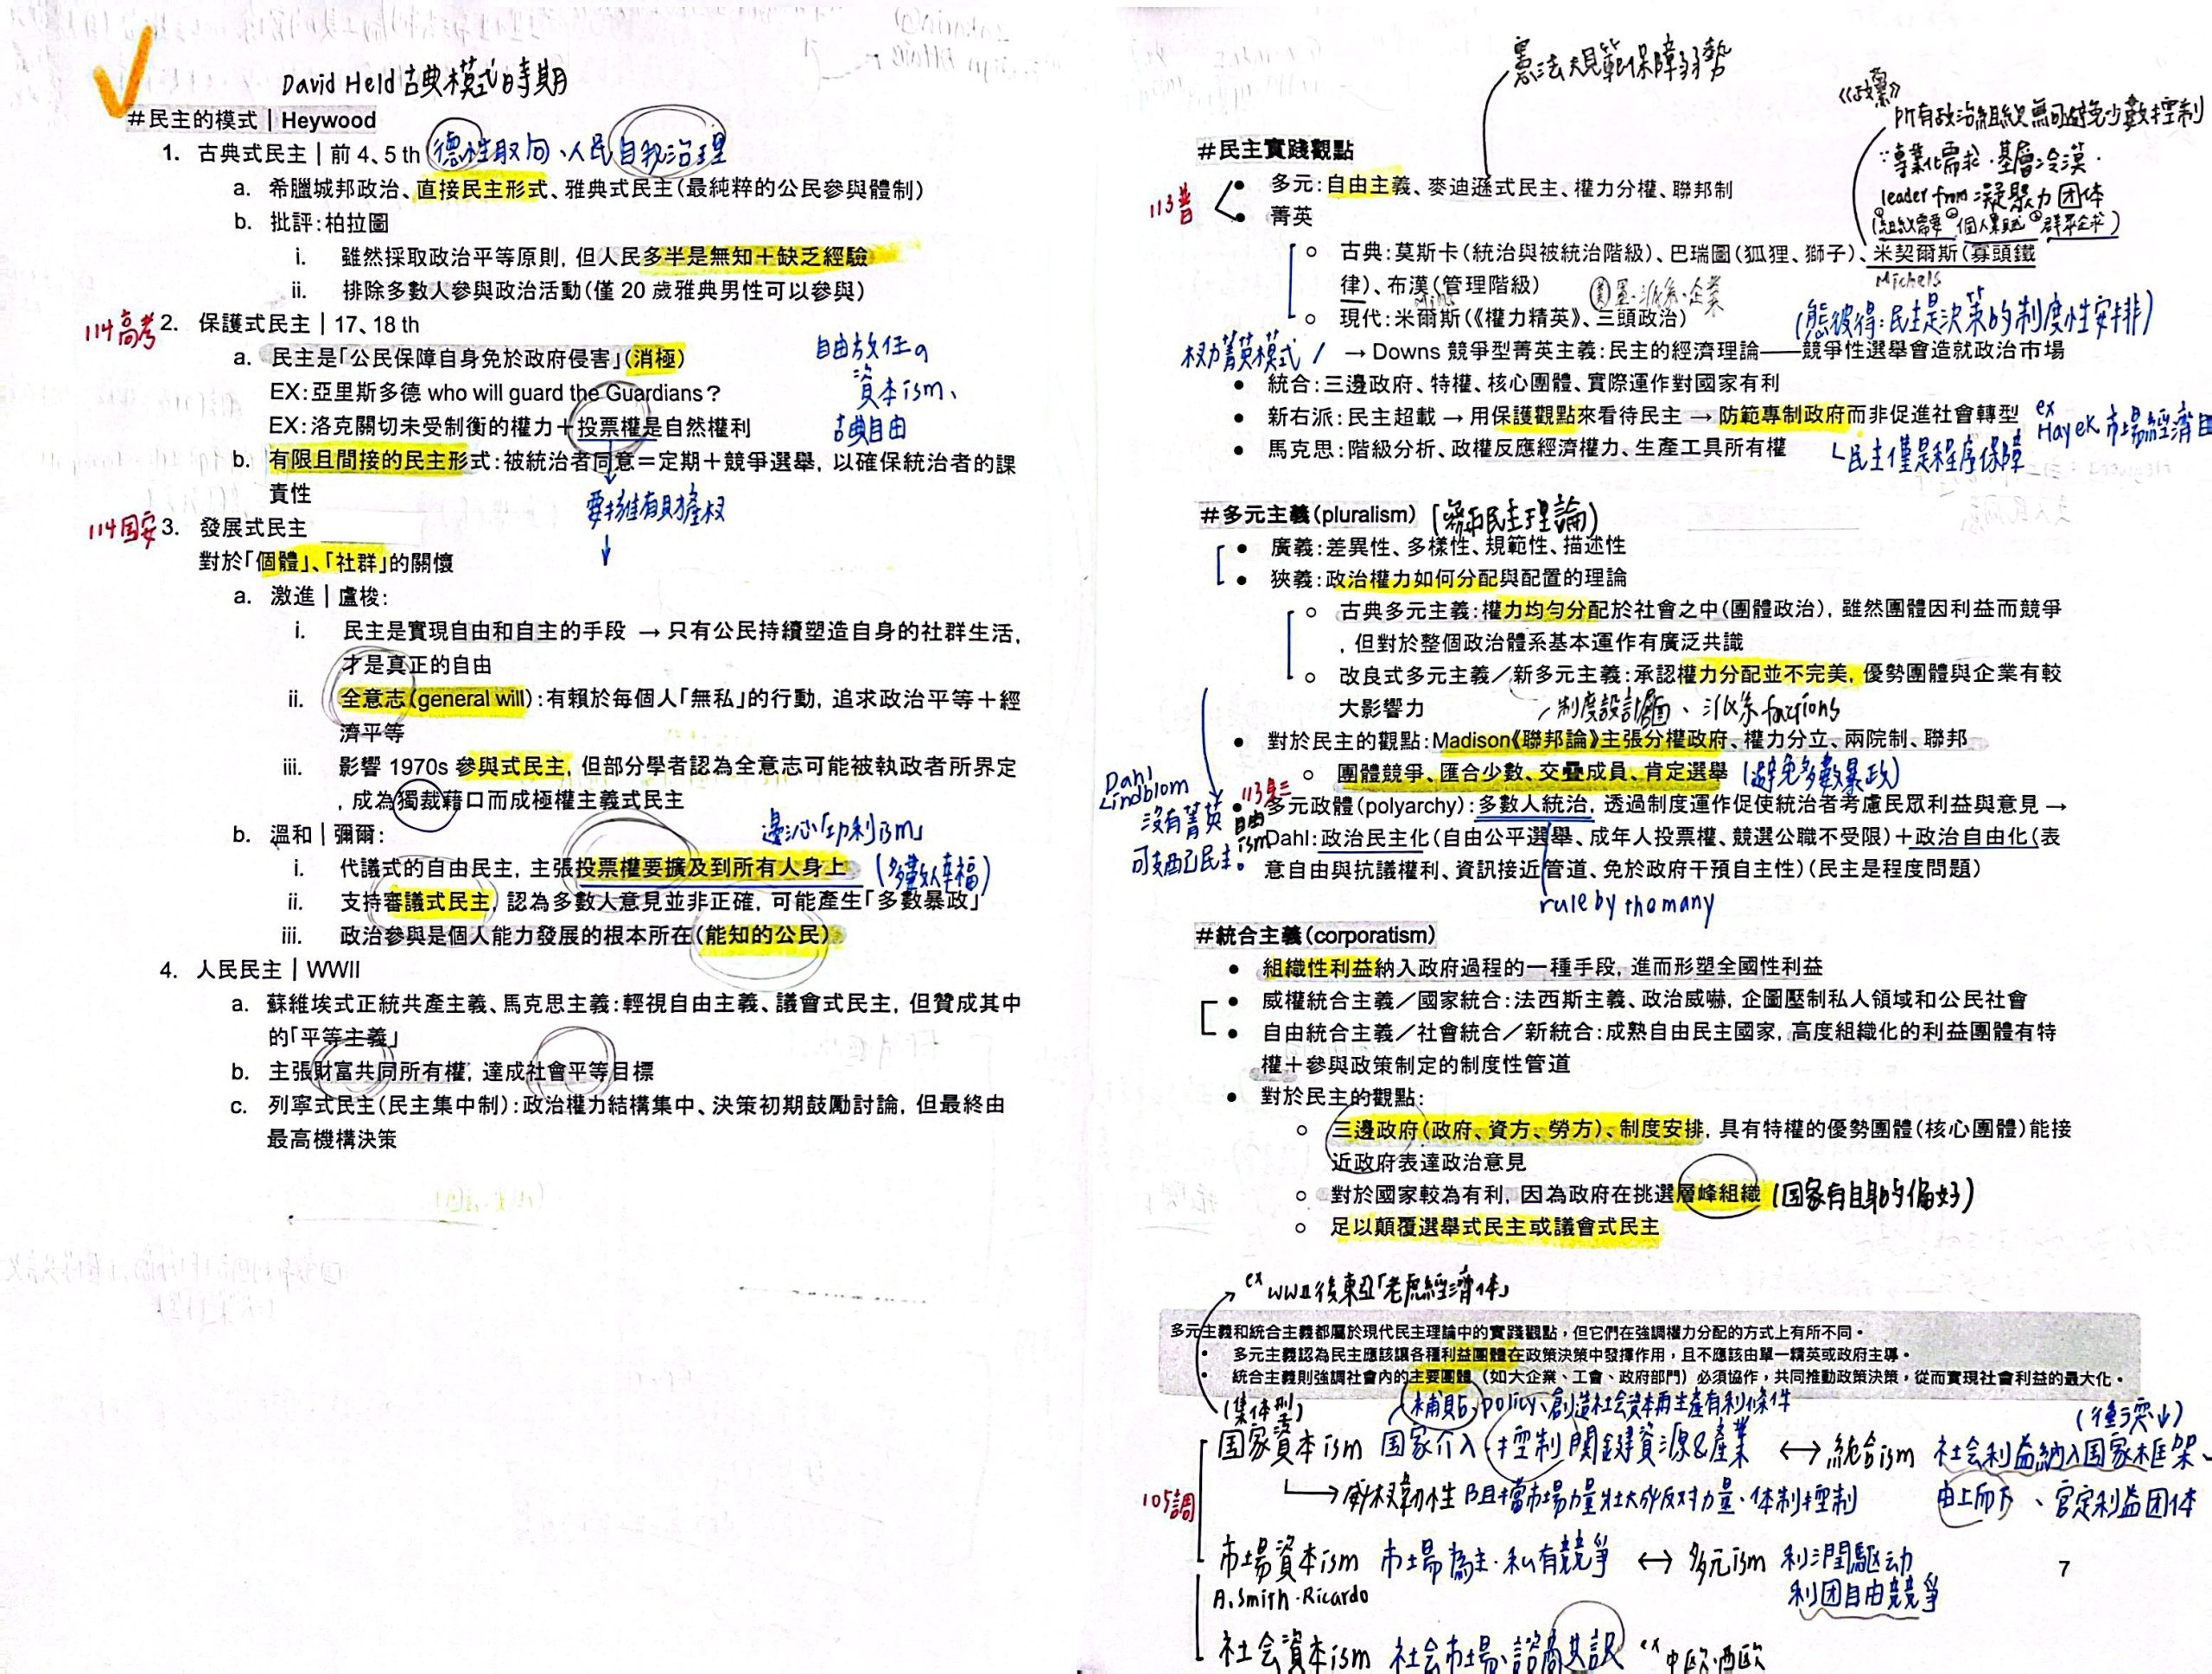 David Held 古典模式時期
#民主的模式 | Heywood
1. 古典式民主 | 前 4、5 th 德性取向、人民自我治理
a. 希臘城邦政治、直接民主形式、雅典式民主(最純粹的公民參與體制)
b. 批評:柏拉圖
i. 雖然採取政治平等原則, 但人民多半是無知+缺乏經驗
ii. 排除多數人參與政治活動(僅 20 歲雅典男性可以參與)
114高考
2. 保護式民主 | 17、18 th
a. 民主是「公民保障自身免於政府侵害」(消極)
EX:亞里斯多德 who will guard the Guardians?
EX:洛克關切未受制衡的權力+投票權是自然權利
自由放任の
資本ism、
古典自由
b. 有限且間接的民主形式:被統治者同意=定期+競爭選舉, 以確保統治者的課
責性
要擁有財產权
114国安
3. 發展式民主
對於「個體」、「社群」的關懷
a. 激進 | 盧梭:
i. 民主是實現自由和自主的手段 → 只有公民持續塑造自身的社群生活,
才是真正的自由
ii. 全意志(general will):有賴於每個人「無私」的行動, 追求政治平等+經
濟平等
iii. 影響 1970s 參與式民主, 但部分學者認為全意志可能被執政者所界定
, 成為獨裁藉口而成極權主義式民主
b. 溫和 | 彌爾:
邊沁「功利ism」
i. 代議式的自由民主, 主張投票權要擴及到所有人身上 (多數人幸福)
ii. 支持審議式民主, 認為多數人意見並非正確, 可能產生「多數暴政」
iii. 政治參與是個人能力發展的根本所在(能知的公民)
4. 人民民主 | WWII
a. 蘇維埃式正統共產主義、馬克思主義:輕視自由主義、議會式民主, 但贊成其中
的「平等主義」
b. 主張財富共同所有權, 達成社會平等目標
c. 列寧式民主(民主集中制):政治權力結構集中、決策初期鼓勵討論, 但最終由
最高機構決策
憲法規範保障弱勢
《政黨》
所有政治組織無可避免少數控制
∵專業化需求·基層冷漠·
leader from 凝聚力团体
#民主實踐觀點
113普
• 多元:自由主義、麥迪遜式民主、權力分權、聯邦制
• 菁英
○ 古典:莫斯卡(統治與被統治階級)、巴瑞圖(狐狸、獅子)、米契爾斯(寡頭鐵
律)、布漢(管理階級)
Michels
Mills
軍·派系·企業
○ 現代:米爾斯(《權力精英》、三頭政治)
(熊彼得:民主是決策的制度性安排)
权力菁英模式
→ Downs 競爭型菁英主義:民主的經濟理論——競爭性選舉會造就政治市場
• 統合:三邊政府、特權、核心團體、實際運作對國家有利
• 新右派:民主超載 → 用保護觀點來看待民主 → 防範專制政府而非促進社會轉型
ex
Hayek 市場經濟自
民主僅是程序保障
• 馬克思:階級分析、政權反應經濟權力、生產工具所有權
#多元主義(pluralism) (參和民主理論)
• 廣義:差異性、多樣性、規範性、描述性
• 狹義:政治權力如何分配與配置的理論
○ 古典多元主義:權力均勻分配於社會之中(團體政治), 雖然團體因利益而競爭
, 但對於整個政治體系基本運作有廣泛共識
○ 改良式多元主義/新多元主義:承認權力分配並不完美, 優勢團體與企業有較
大影響力
制度設計層面、派系 factions
• 對於民主的觀點:Madison《聯邦論》主張分權政府、權力分立、兩院制、聯邦
○ 團體競爭、匯合少數、交疊成員、肯定選舉 (避免多數暴政)
Dahl
Lindblom
沒有菁英
可支配民主。
自由
ism
• 多元政體(polyarchy):多數人統治, 透過制度運作促使統治者考慮民眾利益與意見 →
Dahl:政治民主化(自由公平選舉、成年人投票權、競選公職不受限)+政治自由化(表
意自由與抗議權利、資訊接近管道、免於政府干預自主性)(民主是程度問題)
rule by the many
#統合主義(corporatism)
• 組織性利益納入政府過程的一種手段, 進而形塑全國性利益
• 威權統合主義/國家統合:法西斯主義、政治威嚇, 企圖壓制私人領域和公民社會
• 自由統合主義/社會統合/新統合:成熟自由民主國家, 高度組織化的利益團體有特
權+參與政策制定的制度性管道
• 對於民主的觀點:
○ 三邊政府(政府、資方、勞方)、制度安排, 具有特權的優勢團體(核心團體)能接
近政府表達政治意見
○ 對於國家較為有利, 因為政府在挑選層峰組織 (国家有自身的偏好)
○ 足以顛覆選舉式民主或議會式民主
ex WWII後東亞「老虎經濟体」
多元主義和統合主義都屬於現代民主理論中的實踐觀點,但它們在強調權力分配的方式上有所不同。
• 多元主義認為民主應該讓各種利益團體在政策決策中發揮作用,且不應該由單一精英或政府主導。
• 統合主義則強調社會內的主要團體(如大企業、工會、政府部門)必須協作,共同推動政策決策,從而實現社會利益的最大化。
(集体型)
補貼policy、創造社会資本再生產有利條件
(衝突↓)
国家資本ism 国家介入·控制関鍵資源&產業 ↔ 統合ism 社会利益納入国家框架、
105調
→ 威权韌性 阻擋市場力量壯大成反対力量·体制控制
由上而下、官定利益团体
市場資本ism 市場為主·私有競爭 ↔ 多元ism 利潤驅动
A.Smith·Ricardo
利团自由競爭
7
社会資本ism 社会市場、諮商共識 ex 中欧·西欧